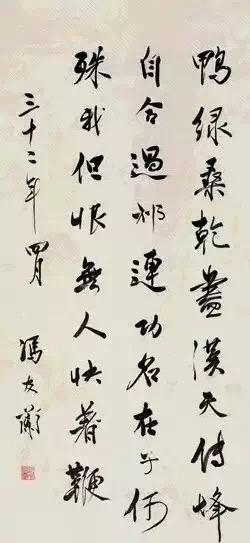 鴨綠桑乾盡漢天傳烽
自合過祁連功名在子何
殊我但恨無人快著鞭
三十二年四月
馮友蘭